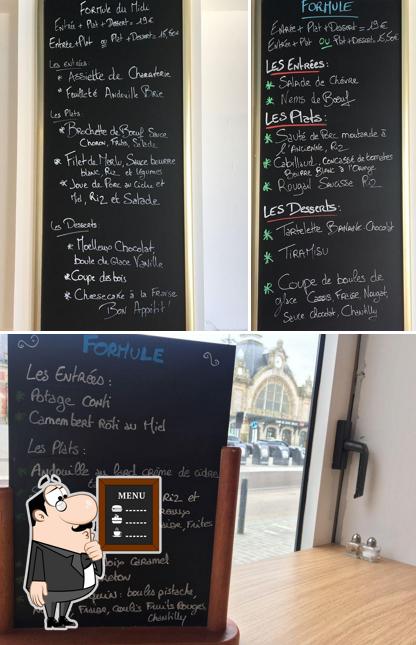 Formule du Midi
Entrée + Plat + Dessert = 19€
Entrée+Plat ou Plat+Dessert= 15,50€
Les entrées:
* Assiette de Charcuterie
* Feuilleté Andouille Brie
Les Plats
* Brochette de Bœuf Sauce
Choron, Frites, Salade
* Filet de Merlu, Sauce beurre
blanc, Riz et légumes
* Joue de Porc au Cidre et
Miel, Riz et Salade
Les Desserts:
* Moelleux Chocolat,
boule de Glace Vanille
* Coupe des bois
* Cheesecake à la Fraise
Bon Appétit!
FORMULE
Entrée + Plat + Dessert = 19€
Entrée + Plat ou Plat + Dessert = 15,50€
LES Entrées:
* Salade de Chèvre
* Nems de Bœuf
LES Plats:
* Sauté de Porc moutarde à
l'Ancienne, Riz
* Cabillaud, concassé de tomates
Beurre Blanc à l'Orange
* Rougail Saucisse Riz
LES Desserts:
* Tartelette Banane-Chocolat
* Tiramisu
* Coupe de boules de
glace Cassis, Fraise, Nougat,
Sauce chocolat, Chantilly
FORMULE
Les Entrées:
* Potage Conti
* Camembert Rôti au Miel
Les Plats:
* Andouille au lard crème de cidre
Riz et
Frites
MENU
Caramel
boules pistache,
Fraise, coulis Fruits Rouges,
Chantilly